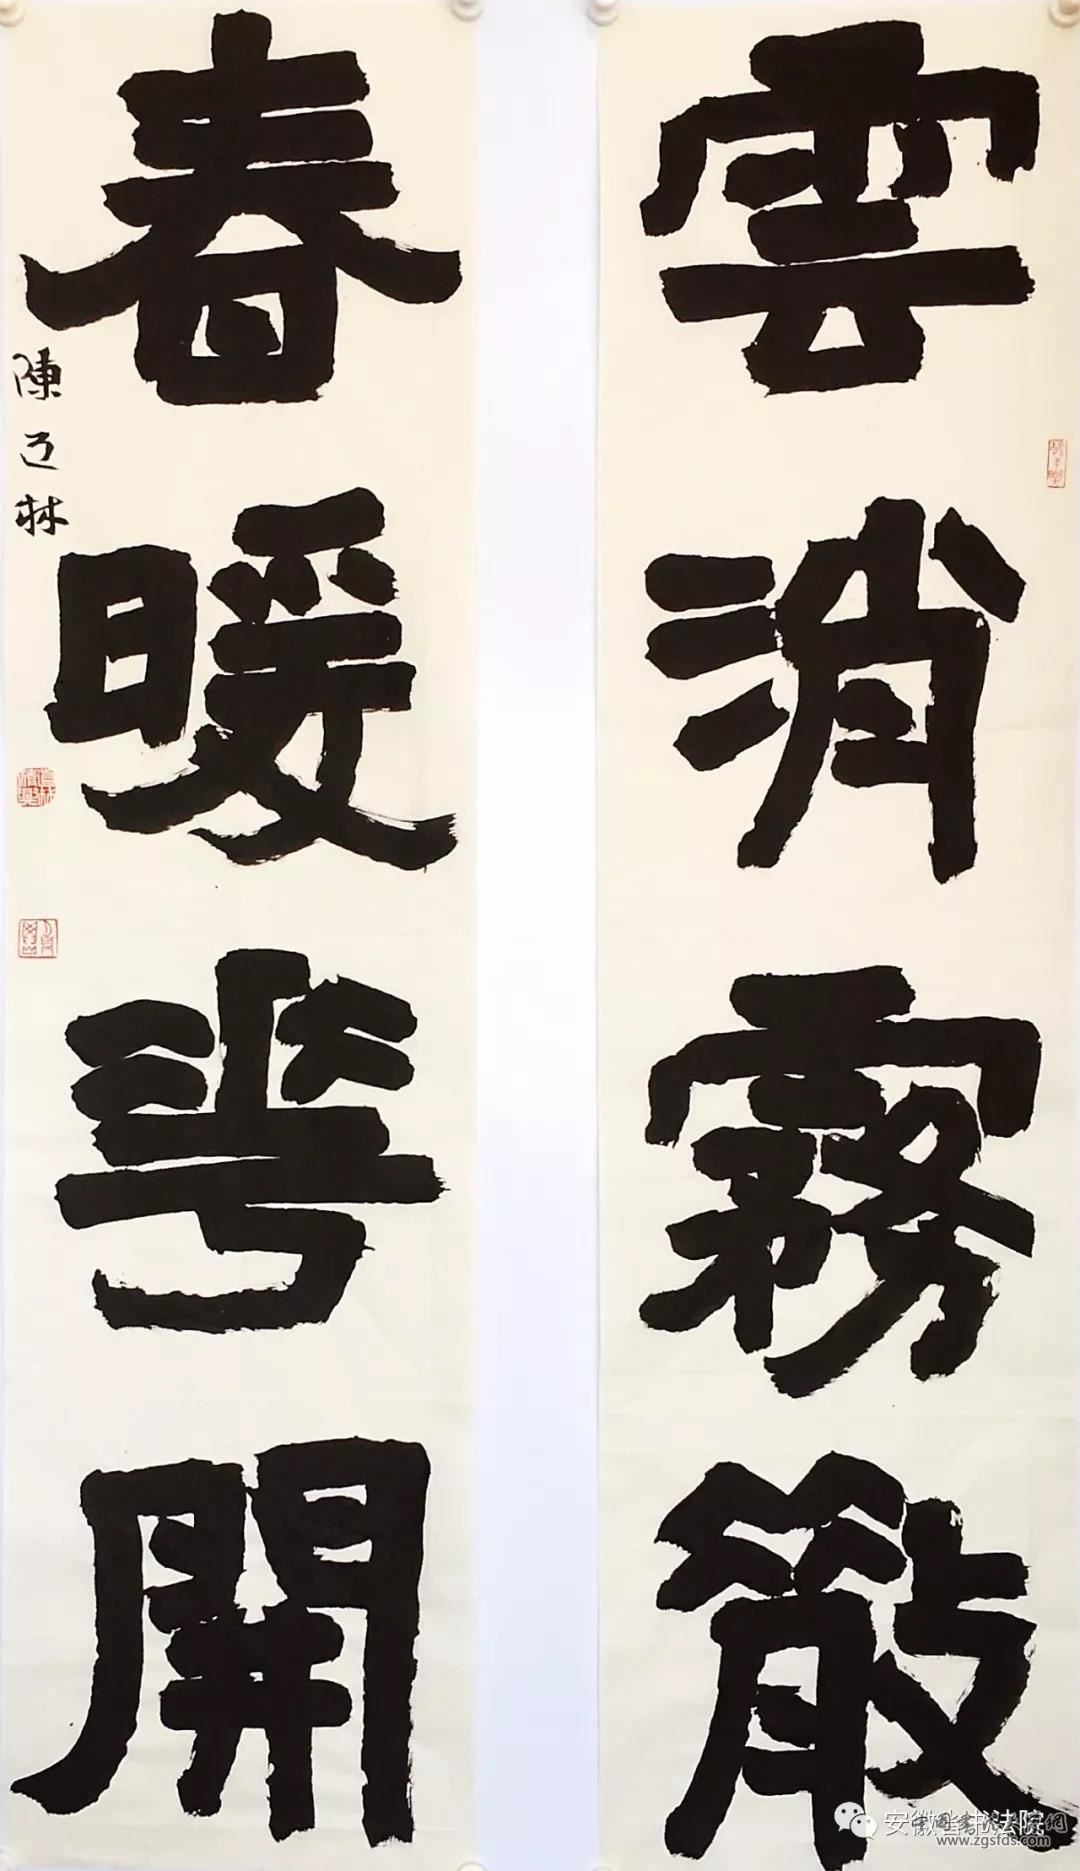 雲消霧散
春暖華開
陳道林
安徽省书法院
www.zgsfds.com